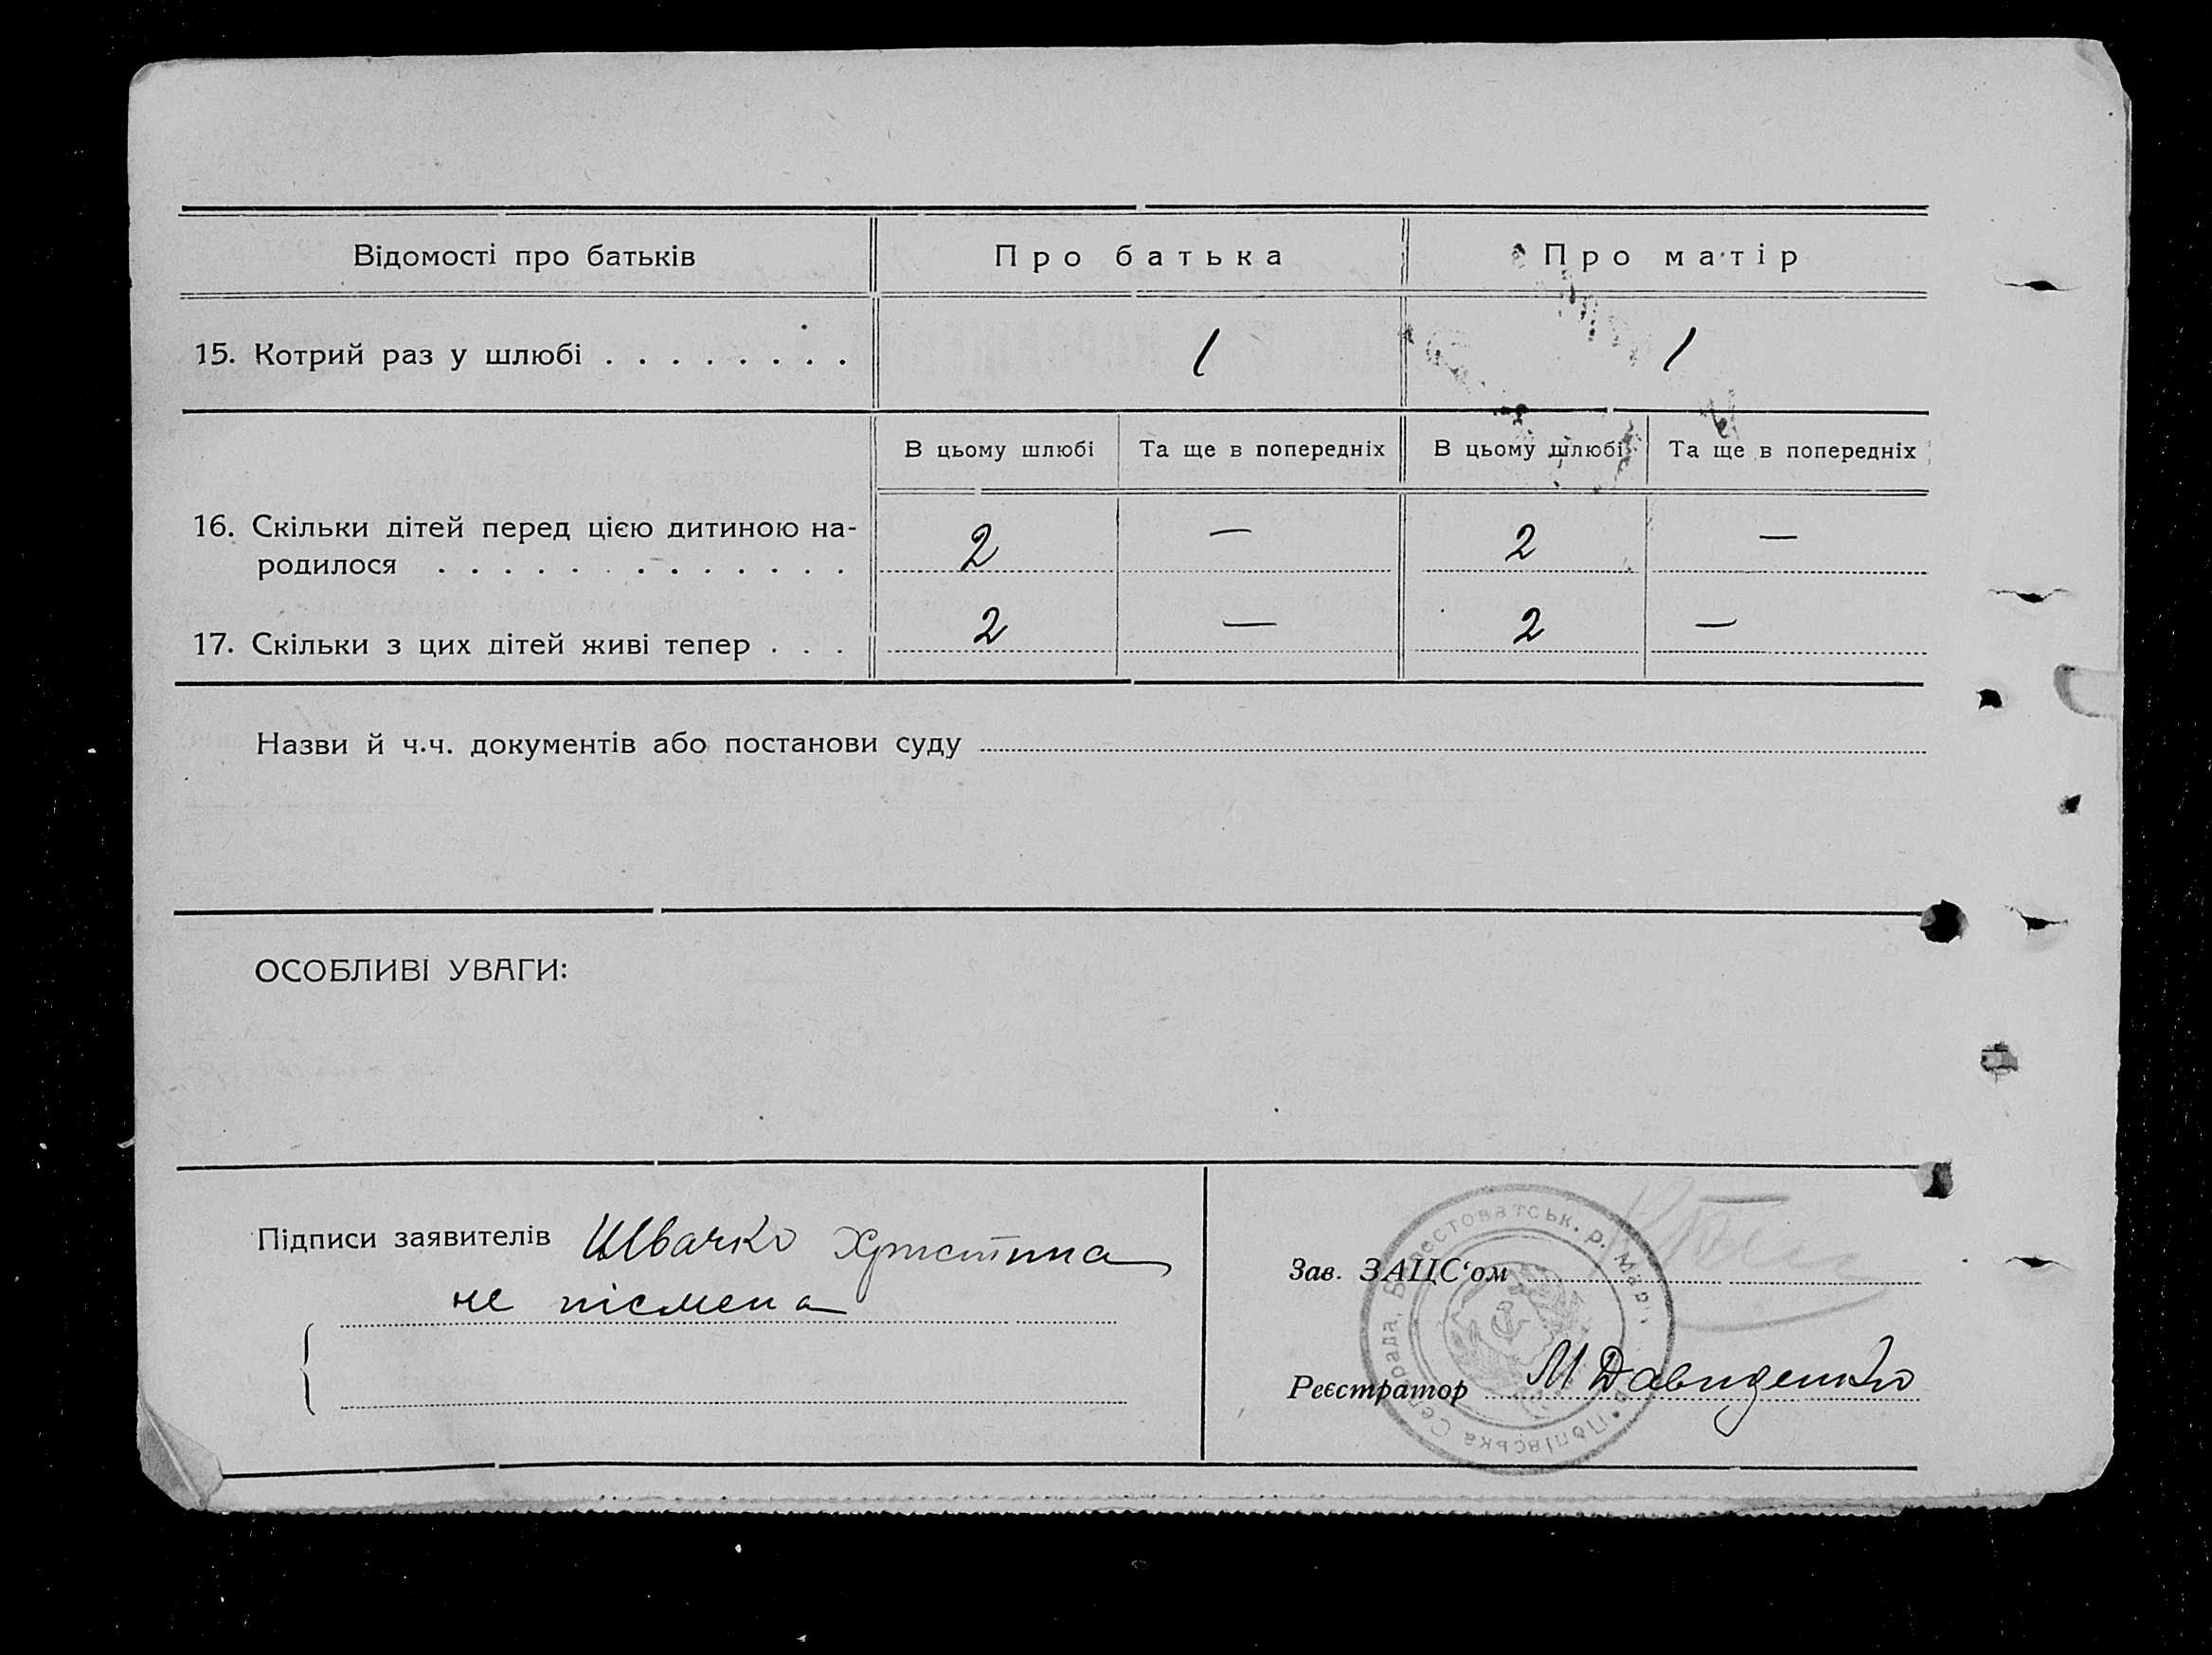 Відомості про батьків
Про батька
Про матір
15. Котрий раз у шлюбі . . . . . . . .
1
1
В цьому шлюбі
Та ще в попередніх
В цьому шлюбі
Та ще в попередніх
16. Скільки дітей перед цією дитиною на-
родилося . . . . . . . . . . . . .
2
—
2
—
17. Скільки з цих дітей живі тепер . . .
2
—
2
—
Назви й ч.ч. документів або постанови суду
ОСОБЛИВІ УВАГИ:
Підписи заявителів Швачко Христина
не písмена
Зав. ЗАЦС‘ом
Реєстратор М Давиденко
Попівська Сельрада, Б
рестоватськ. р. Мар